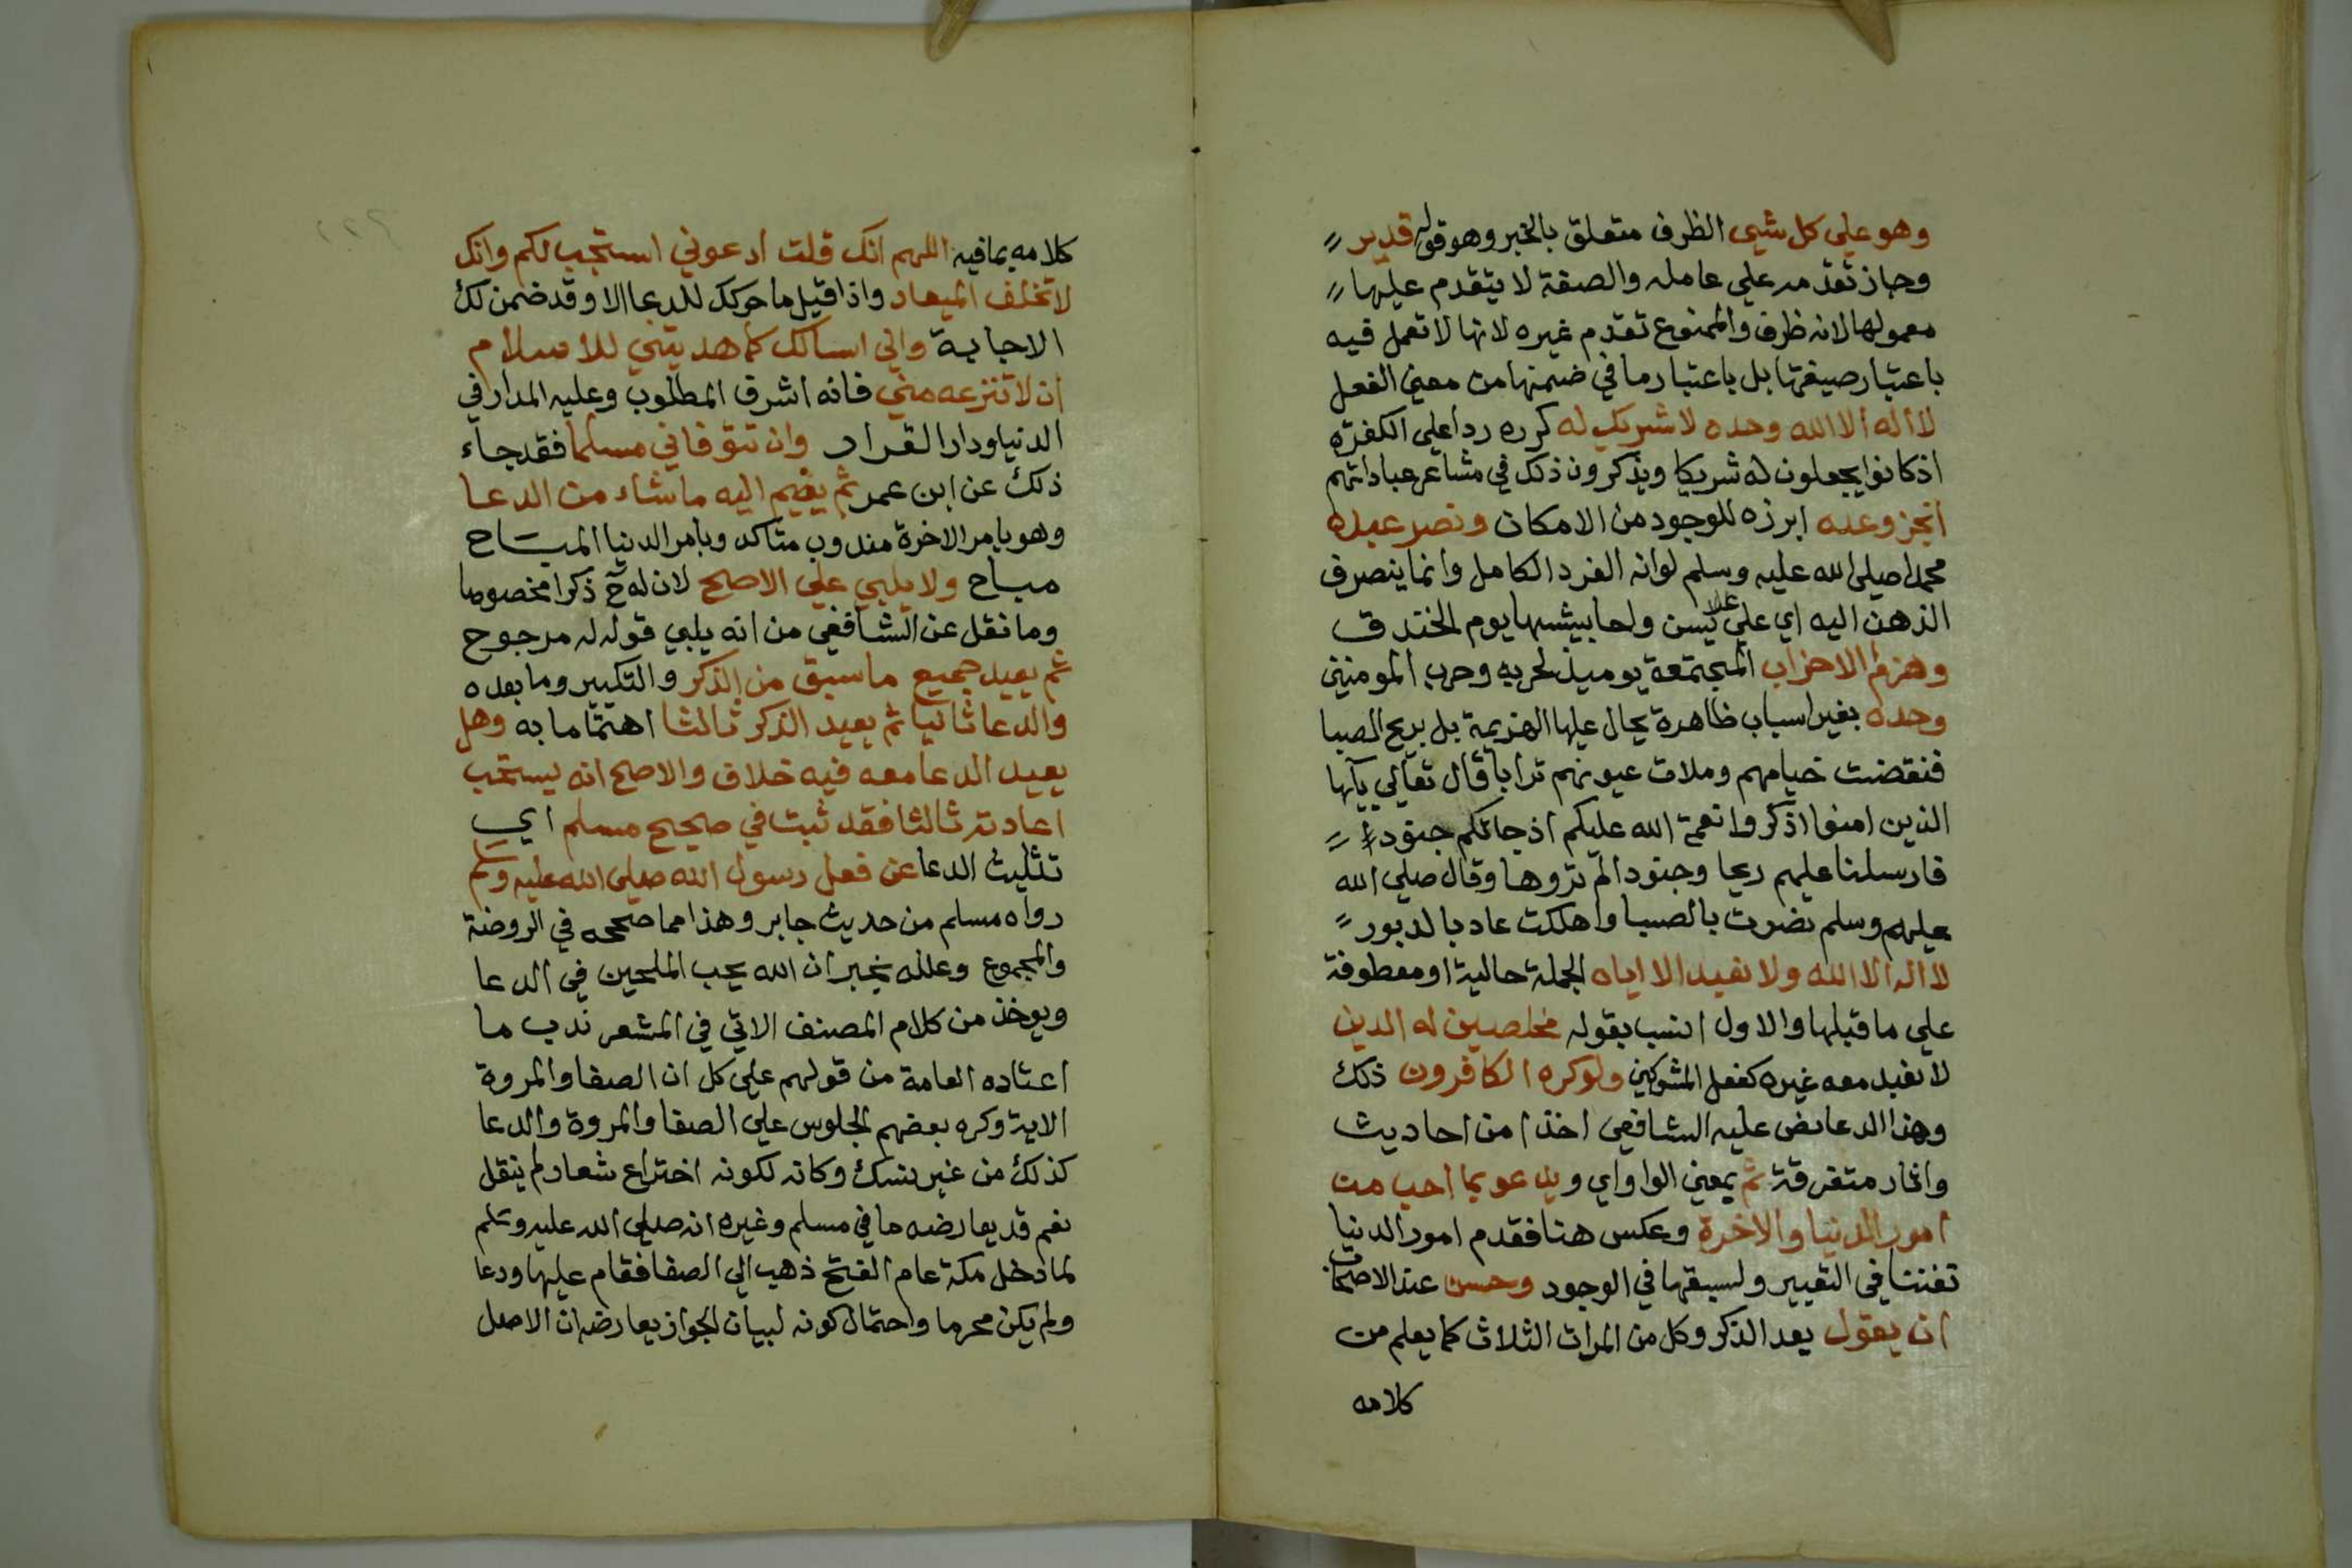 وهو علي كل شيء الظرف متعلق بالخبر وهو قوله قدير
وجاز تقدمه علي عامله والصفة لا يتقدم عليها
معمولها لانه ظرف والممنوع تقدم غيره لانها لا تعمل فيه
باعتبار صيغتها بل باعتبار ما في ضمنها من معني الفعل
لا اله الا الله وحده لا شريك له كرره ردا علي الكفره
اذ كانوا يجعلون له شريكا ويذكرون ذلك في مشاعر عباداتهم
انجز وعده ابرزه للوجود من الامكان ونصر عبده
محمدا صلي الله عليه وسلم لوانه الفرد الكامل وانما ينصرف
الذهن اليه اي علي يوم الخندق
وهزم الاحزاب المجتمعة يوميذ لحربه وحرب المومنين
وحده بغير اسباب ظاهرة يحال عليها الهزيمة بل بريح الصبا
فنقضت خيامهم وملات عيونهم ترابا قال تعالي يآيها
الذين امنوا اذكروا نعمة الله عليكم اذ جاتكم جنود
فارسلنا عليهم ريحا وجنودا لم تروها وقال صلي الله
عليهم وسلم نصرت بالصبا واهلكت عاد بالدبور
لا اله الا الله ولا نعبد الا اياه الجملة حالية او معطوفة
علي ما قبلها والاول انسب بقوله مخلصين له الدين
لا نعبد معه غيره كفعل المشركين ولو كره الكافرون ذلك
وهذا الدعا نص عليه الشافعي اخذا من احاديث
واثار متفرقة ثم بمعني الواو اي ويدعو بما احب من
امور الدنيا والاخرة وعكس هنا فقدم امور الدنيا
تفننا في التعبير ولسبقها في الوجود وحسن عند الاصحاب
ان يقول بعد الذكر وكل من المرات الثلاث كما يعلم من
كلامه
كلامه بما فيه اللهم انك قلت ادعوني استجب لكم وانك
لا تخلف الميعاد واذا قيل ما حركك للدعا الا وقد ضمن لك
الاجابة واني اسالك كما هديتني للاسلام
ان لا تنزعه مني فانه اشرف المطلوب وعليه المدار في
الدنيا ودار القرار وان تتوفاني مسلما فقد جاء
ذلك عن ابن عمر ثم يضم اليه ما شاء من الدعا
وهو بامر الاخرة مندوب متاكد وبامر الدنيا المباح
مباح ولا يلبي علي الاصح لان له ح ذكرا مخصوصا
وما نقل عن الشافعي من انه يلبي قوله له مرجوح
ثم يعيد جميع ما سبق من الذكر والتكبير وما بعده
والدعا ثانيا ثم يعيد الذكر ثالثا اهتماما به وهل
يعيد الدعا معه فيه خلاف والاصح انه يستحب
اعادته ثالثا فقد ثبت في صحيح مسلم اي
تثليث الدعا عن فعل رسول الله صلي الله عليه وسلم
رواه مسلم من حديث جابر وهذا مما صححه في الروضة
والمجموع وعلله بخبر ان الله يحب الملحين في الدعا
ويوخذ من كلام المصنف الاتي في المشعر ندب ما
اعتاده العامة من قولهم علي كل ان الصفا والمروة
الاية وكره بعضهم الجلوس علي الصفا والمروة والدعا
كذلك من غير نسك وكانه لكونه اختراع شعار لم ينقل
نعم قد يعارضه ما في مسلم وغيره انه صلي الله عليه وسلم
لما دخل مكة عام الفتح ذهب الي الصفا فقام عليها ودعا
ولم يكن محرما واحتمال كونه لبيان الجواز يعارضه ان الاصل